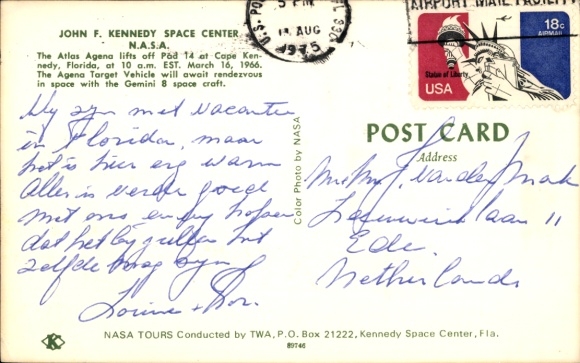 JOHN F. KENNEDY SPACE CENTER
N.A.S.A.
The Atlas Agena lifts off Pad 14 at Cape Ken-
nedy, Florida, at 10 a.m. EST. March 16, 1966.
The Agena Target Vehicle will await rendezvous
in space with the Gemini 8 space craft.
5 PM
14 AUG
1975
AIRPORT MAIL FACILITY
18c
AIRMAIL
Statue of Liberty
USA
Wy zyn met vacantie
in Florida, maar
het is hier erg warm
Alles is verder goed
met ons en wy hopen
dat het by jullie het
zelfde mag zyn
Color Photo by NASA
POST CARD
Address
Mr Mrs J. van der
laan 11
Ede
Netherlands
NASA TOURS Conducted by TWA, P.O. Box 21222, Kennedy Space Center, Fla.
K
89746